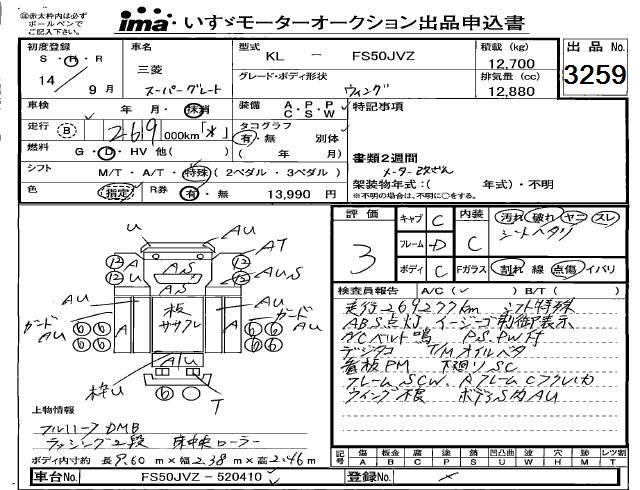 ㊟赤太枠内は必ず
ボールペンで
ご記入下さい。
ima・いすゞモーターオークション出品申込書
初度登録 S・H・R 14年9月
車名 三菱 スーパーグレート
型式 KL － FS50JVZ
グレード・ボディ形状 ウィング
積載 (kg) 12,700
排気量 (cc) 12,880
出品 No. 3259
車検 年・月・抹消
装備 A・P・P C・S・W
特記事項
走行 B 269 000km「*」
タコグラフ 有・無 別体
( 年 月)
燃料 G・D・HV 他( )
書類2週間
シフト M/T・A/T・特殊(2ペダル・3ペダル)
架装物年式:( 年式)・不明
※不明の場合は、不明に○をする。
色 指定 R券 有・無 13,990 円
評価 3
キャブ C
フレーム D
ボディ C
内装 C
汚れ・破れ・ヤニ・スレ
シートヘタリ
Fガラス 割れ 線 点傷・イバリ
検査員報告 A/C( ✓ )・B/T( )
走行269277km シフト特殊
ABS点灯 イージーゴー制御表示
A/Cベルト鳴 P.S.PW付
デジタコ T/Mオイルベタ
看板PM 下廻りSC
フレームSCW. AフレームCフクレカ
U AU AT
12 12 AS AUS
AU A 板ササクレ A AU
ガード AU ガードAU
6 6 6 6
枠U A/U T
6
上物情報
フルハーフDMB
ラッシング2段 床中央ローラー
ボディ内寸約 長9.60 m×幅2.38 m×高2.46m
記号 傷A 板金B 腐C 塗P 錆S 凹凸曲U 波W 穴H 跡M レツ割T
車台No. FS50JVZ－520410
登録No.